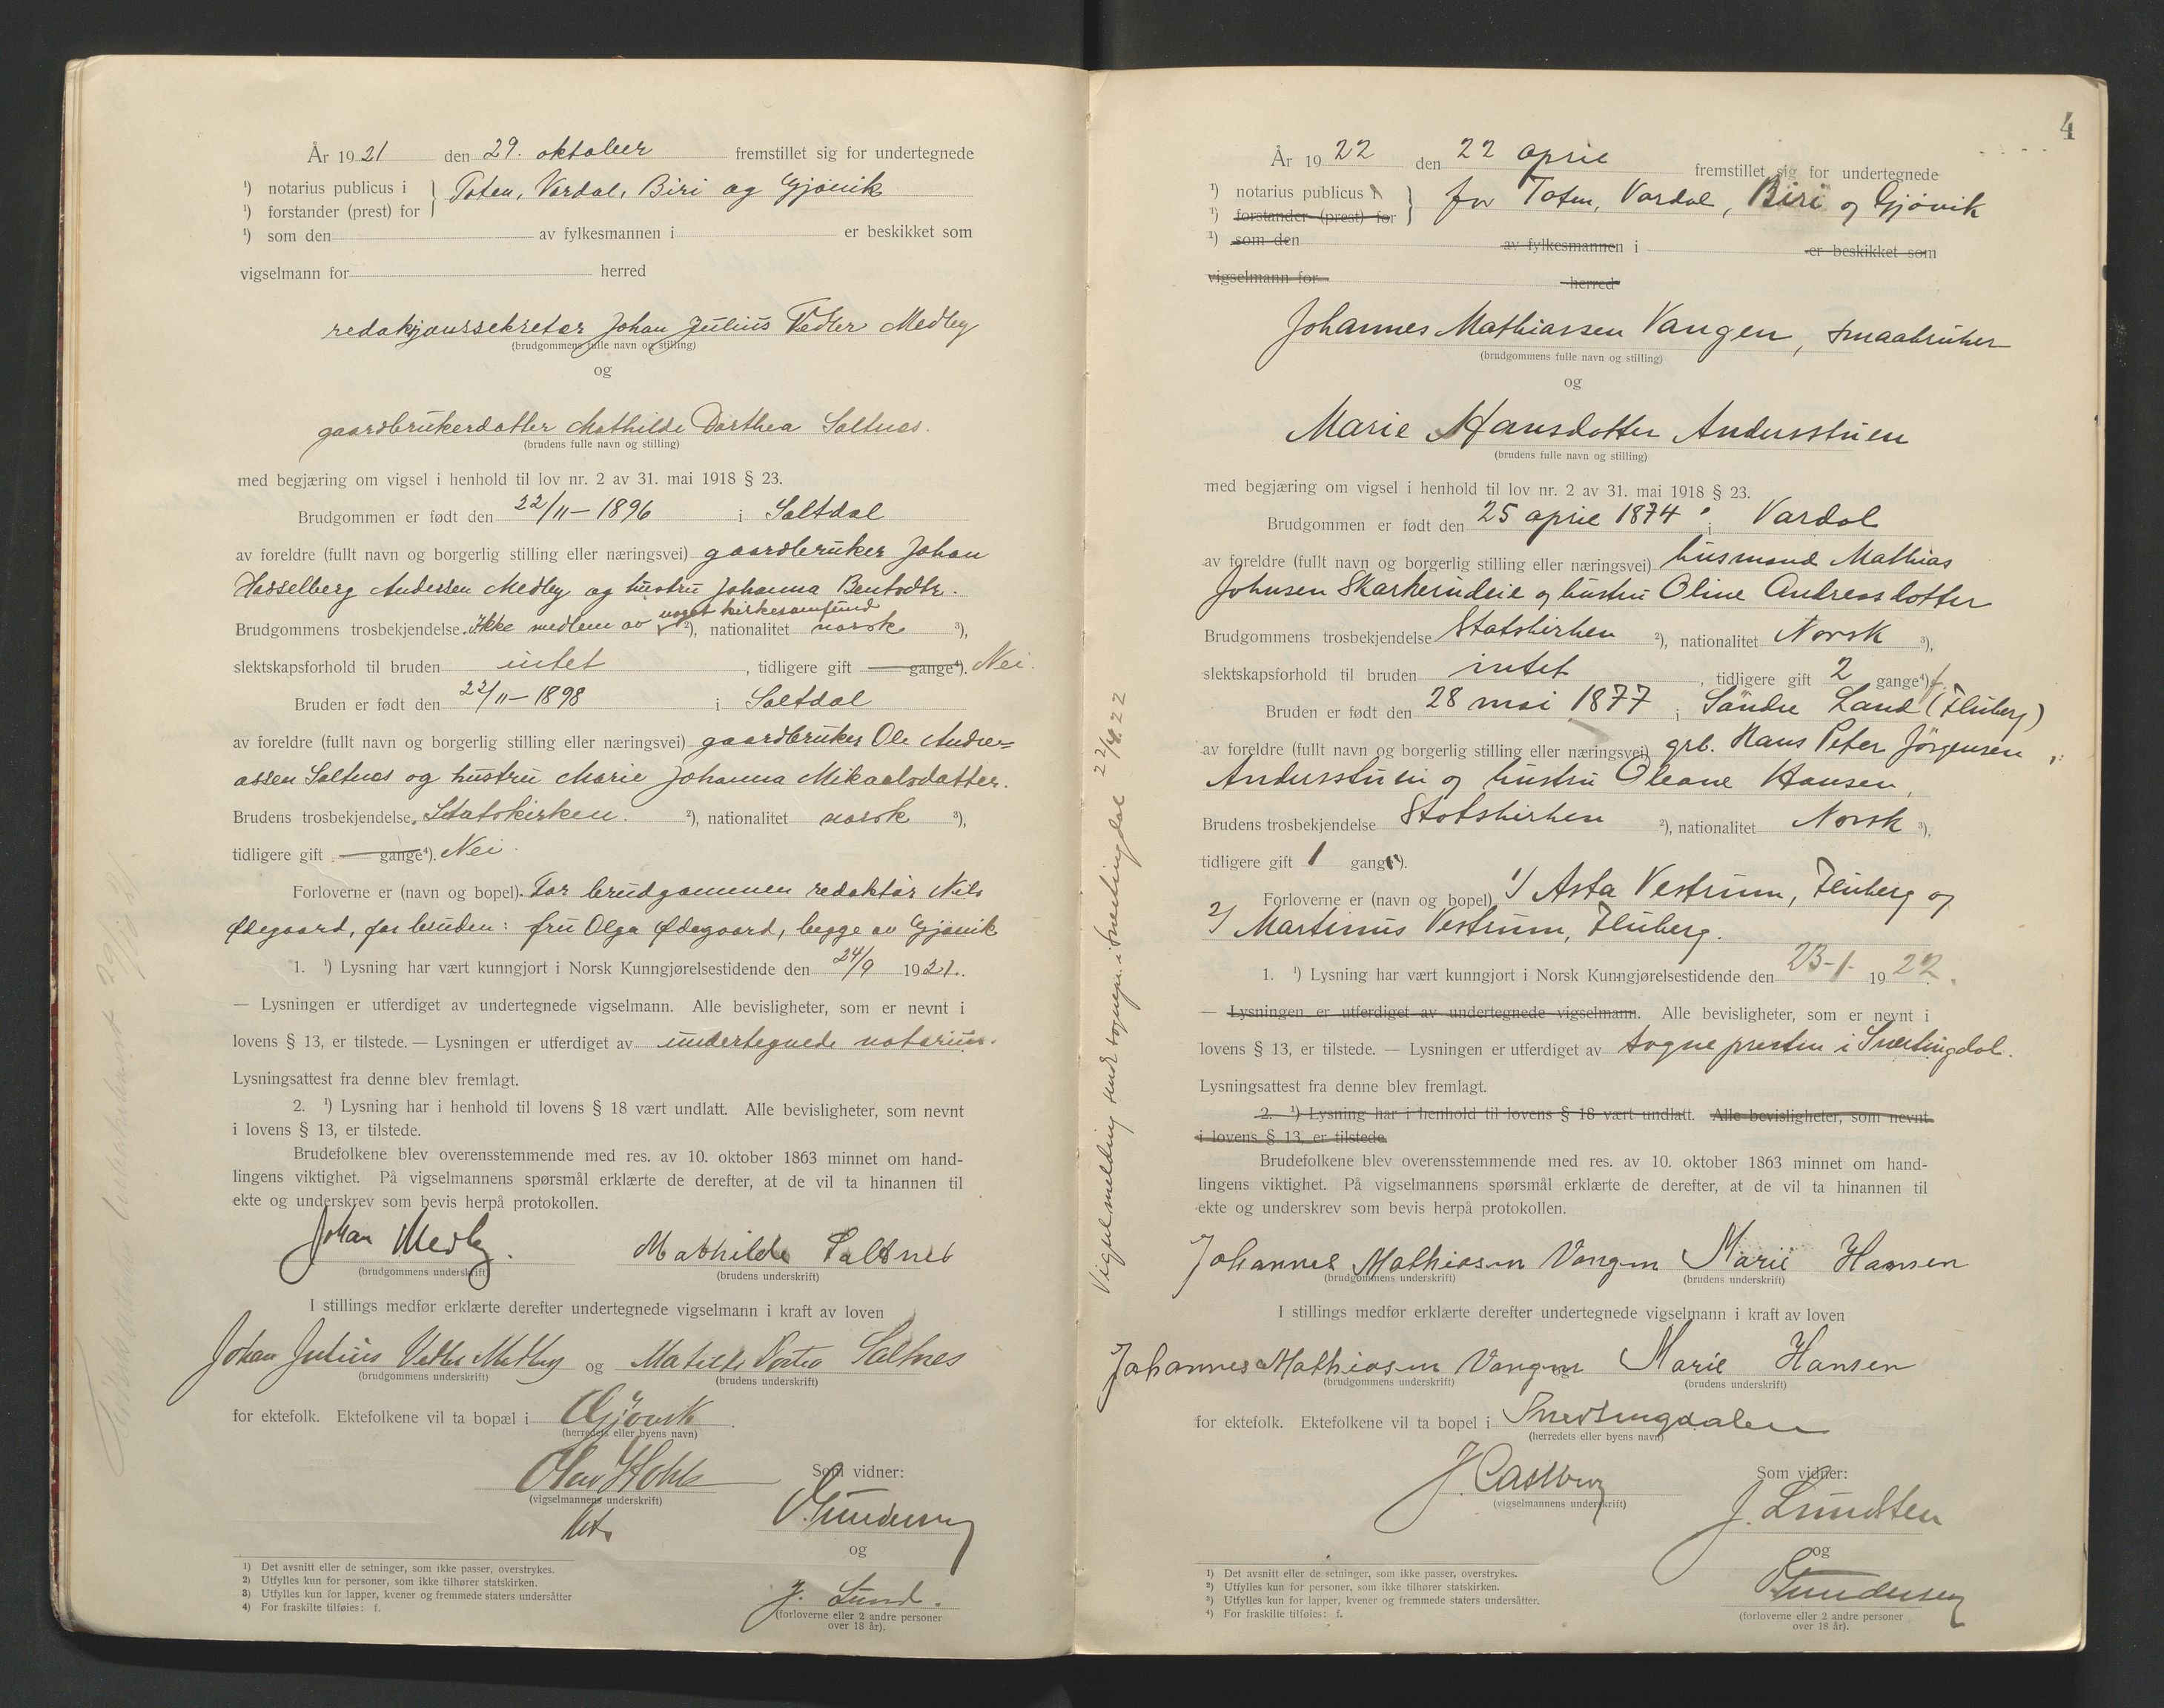 År 1921 den 29. oktober fremstillet sig for undertegnede
¹) notarius publicus i } Toten, Vardal, Biri og Gjøvik
¹) forstander (prest) for
¹) som den av fylkesmannen i er beskikket som
vigselmann for herred
redaksjonssekretær Johan Julius Vedler Medby
(brudgommens fulle navn og stilling)
og
gaardbrukerdatter Mathilde Dorthea Saltnes.
(brudens fulle navn og stilling)
med begjæring om vigsel i henhold til lov nr. 2 av 31. mai 1918 § 23.
Brudgommen er født den 22/11-1896 i Saltdal
av foreldre (fullt navn og borgerlig stilling eller næringsvei) gaardbruker Johan
Hasselberg Andersen Medby og hustru Johanna Bentsdtr.
Brudgommens trosbekjendelse. Ikke medlem av noget kirkesamfund ²), nationalitet norsk ³),
slektskapsforhold til bruden intet, tidligere gift gange⁴). Nei.
Bruden er født den 22/11-1898 i Saltdal
av foreldre (fullt navn og borgerlig stilling eller næringsvei) gaardbruker Ole Andre=
assen Saltnes og hustru Marie Johanna Mikaelsdatter.
Brudens trosbekjendelse. Statskirken. ²), nationalitet norsk ³),
tidligere gift gange⁴). Nei.
Forloverne er (navn og bopel). For brudgommen redaktør Nils
Ødegaard, for bruden: fru Olga Ødegaard, begge av Gjøvik
1. ¹) Lysning har vært kunngjort i Norsk Kunngjørelsestidende den 24/9 1921.
— Lysningen er utferdiget av undertegnede vigselmann. Alle bevisligheter, som er nevnt i
lovens § 13, er tilstede. — Lysningen er utferdiget av undertegnede notarius.
Lysningsattest fra denne blev fremlagt.
2. ¹) Lysning har i henhold til lovens § 18 vært undlatt. Alle bevisligheter, som nevnt
i lovens § 13, er tilstede.
Brudefolkene blev overensstemmende med res. av 10. oktober 1863 minnet om hand-
lingens viktighet. På vigselmannens spørsmål erklærte de derefter, at de vil ta hinannen til
ekte og underskrev som bevis herpå protokollen.
Johan Medby. Mathilde Saltnes
(brudgommens underskrift) (brudens underskrift)
I stillings medfør erklærte derefter undertegnede vigselmann i kraft av loven
Johan Julius Vedler Medby og Matilde Dortea Saltnes
(brudgommens underskrift) (brudens underskrift)
for ektefolk. Ektefolkene vil ta bopæl i Gjøvik.
(herredets eller byens navn)
Som vidner:
(vigselmannens underskrift)
O. Gundersen
og
J. Lund.
(forloverne eller 2 andre personer
over 18 år).
1) Det avsnitt eller de setninger, som ikke passer, overstrykes.
2) Utfylles kun for personer, som ikke tilhører statskirken.
3) Utfylles kun for lapper, kvener og fremmede staters undersåtter
4) For fraskilte tilføies: f.
4
År 1922 den 22 april fremstillet sig for undertegnede
¹) notarius publicus i } for Toten, Vardal, Biri og Gjøvik
¹) forstander (prest) for
¹) som den av fylkesmannen i er beskikket som
vigselmann for herred
Johannes Mathiassen Vangen, smaabruker
(brudgommens fulle navn og stilling)
og
Marie Hansdatter Andersstuen
(brudens fulle navn og stilling)
med begjæring om vigsel i henhold til lov nr. 2 av 31. mai 1918 § 23.
Brudgommen er født den 25 april 1874 i Vardal
av foreldre (fullt navn og borgerlig stilling eller næringsvei) husmand Mathias
Johnsen Skarkerudeie og hustru Oline Andreasdotter
Brudgommens trosbekjendelse Statskirken ²), nationalitet Norsk ³),
slektskapsforhold til bruden intet, tidligere gift 2 gange⁴) f.
Bruden er født den 28 mai 1877 i Søndre Land (Fluberg)
av foreldre (fullt navn og borgerlig stilling eller næringsvei) grb. Hans Peter Jörgensen
Andersstuen og hustru Oleane Hansen,
Brudens trosbekjendelse Statskirken ²), nationalitet Norsk ³),
tidligere gift 1 gang⁴).
Forloverne er (navn og bopel) 1/ Asta Vestrum, Fluberg og
2/ Martinus Vestrum, Fluberg.
1. ¹) Lysning har vært kunngjort i Norsk Kunngjørelsestidende den 23-1- 1922.
— Lysningen er utferdiget av undertegnede vigselmann. Alle bevisligheter, som er nevnt i
lovens § 13, er tilstede. — Lysningen er utferdiget av sognepresten i Snertingdal.
Lysningsattest fra denne blev fremlagt.
2. ¹) Lysning har i henhold til lovens § 18 vært undlatt. Alle bevisligheter, som nevnt
i lovens § 13, er tilstede.
Brudefolkene blev overensstemmende med res. av 10. oktober 1863 minnet om hand-
lingens viktighet. På vigselmannens spørsmål erklærte de derefter, at de vil ta hinannen til
ekte og underskrev som bevis herpå protokollen.
Johannes Mathiasen Vangen Marie Hansen
(brudgommens underskrift) (brudens underskrift)
I stillings medfør erklærte derefter undertegnede vigselmann i kraft av loven
Johannes Mathiasen Vangen og Marie Hansen
(brudgommens underskrift) (brudens underskrift)
for ektefolk. Ektefolkene vil ta bopel i Snertingdalen
(herredets eller byens navn)
J. Castberg Som vidner:
(vigselmannens underskrift)
J. Lundsten
og
O Gundersen
(forloverne eller 2 andre personer
over 18 år).
1) Det avsnitt eller de setninger, som ikke passer, overstrykes.
²) Utfylles kun for personer, som ikke tilhører statskirken.
³) Utfylles kun for lapper, kvener og fremmede staters undersåtter.
⁴) For fraskilte tilføies: f.
Vigselmelding sendt sognepr. i Snertingdal 22/4.22